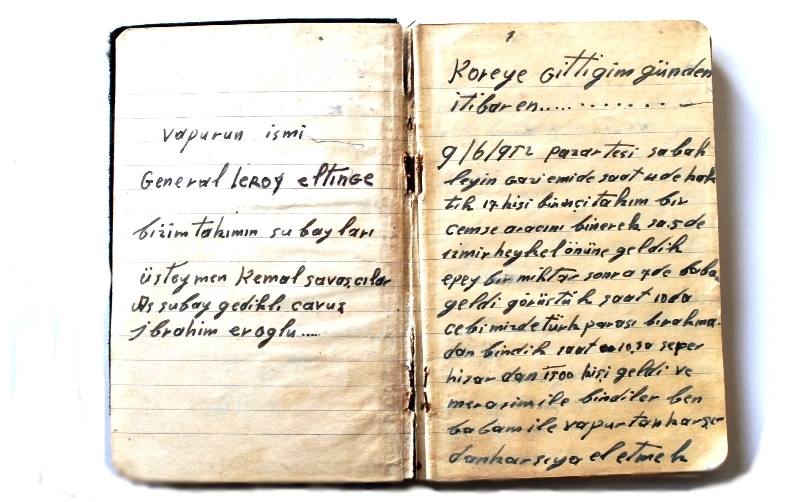 vapurun ismi
General LEROY eltinge
bizim takımın subayları
üsteymen Kemal savaşcılar
As subay gedikli cavuş
ibrahim eroglu....
1
Koreye Gittigim günden
itibaren.....
9/6/952 pazartesi sabah
leyin Gaziemide saat 4 de kalk
tık 17 kişi birinci takım bir
cemse aracını binerek sa.5 de
izmir heykel önüne geldik
epey bir miktar sonra 7 de baba
geldi görüştük saat 10 da
cebimizde türk parası bırakma
dan bindik saat 10,30 sefer
hisar dan 1500 kişi geldi ve
merasim ile bindiler ben
babam ile vapurtan karşı
dan karsıya el etmek